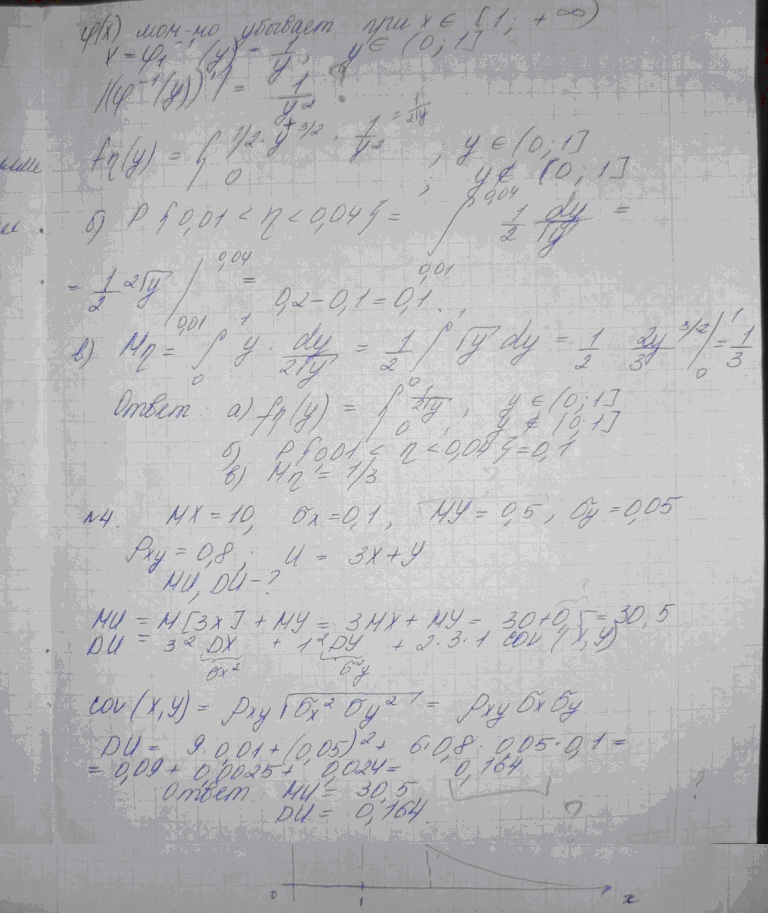 φ(x) мон-но убывает при x ∈ [1; +∞)
x = φ₁⁻¹(y) = 1/y, y ∈ (0; 1]
|(φ⁻¹(y))'| = 1/y².
fη(y) = { 1/2 · y^3/2 · 1/y² = 1/(2√y), y ∈ (0, 1]
0, y ∉ (0, 1]
б) P{0,01 < η < 0,04} = ∫ 0,01 0,04 1/2 dy/√y =
= 1/2 2√y | 0,01 0,04 = 0,2 - 0,1 = 0,1.
в) Mη = ∫ 0 1 y · dy/(2√y) = 1/2 ∫ 0 1 √y dy = 1/2 2/3 y^3/2 | 0 1 = 1/3
Ответ а) fη(y) = { 1/(2√y), y ∈ (0; 1]
0, y ∉ (0; 1]
б) P{0,01 < η < 0,04} = 0,1
в) Mη = 1/3
№4. MX = 10, σx = 0,1, MY = 0,5, σy = 0,05
ρxy = 0,8; U = 3X + Y
MU, DU - ?
MU = M[3X] + MY = 3MX + MY = 30 + 0,5 = 30,5
DU = 3² DX + 1² DY + 2·3·1 cov(X,Y)
σx² σ²y
cov(X,Y) = ρxy √(σx² σy²) = ρxy σx σy
DU = 9·0,01 + (0,05)² + 6·0,8·0,05·0,1 =
= 0,09 + 0,0025 + 0,024 = 0,164
Ответ MU = 30,5
DU = 0,164.
0 1 x